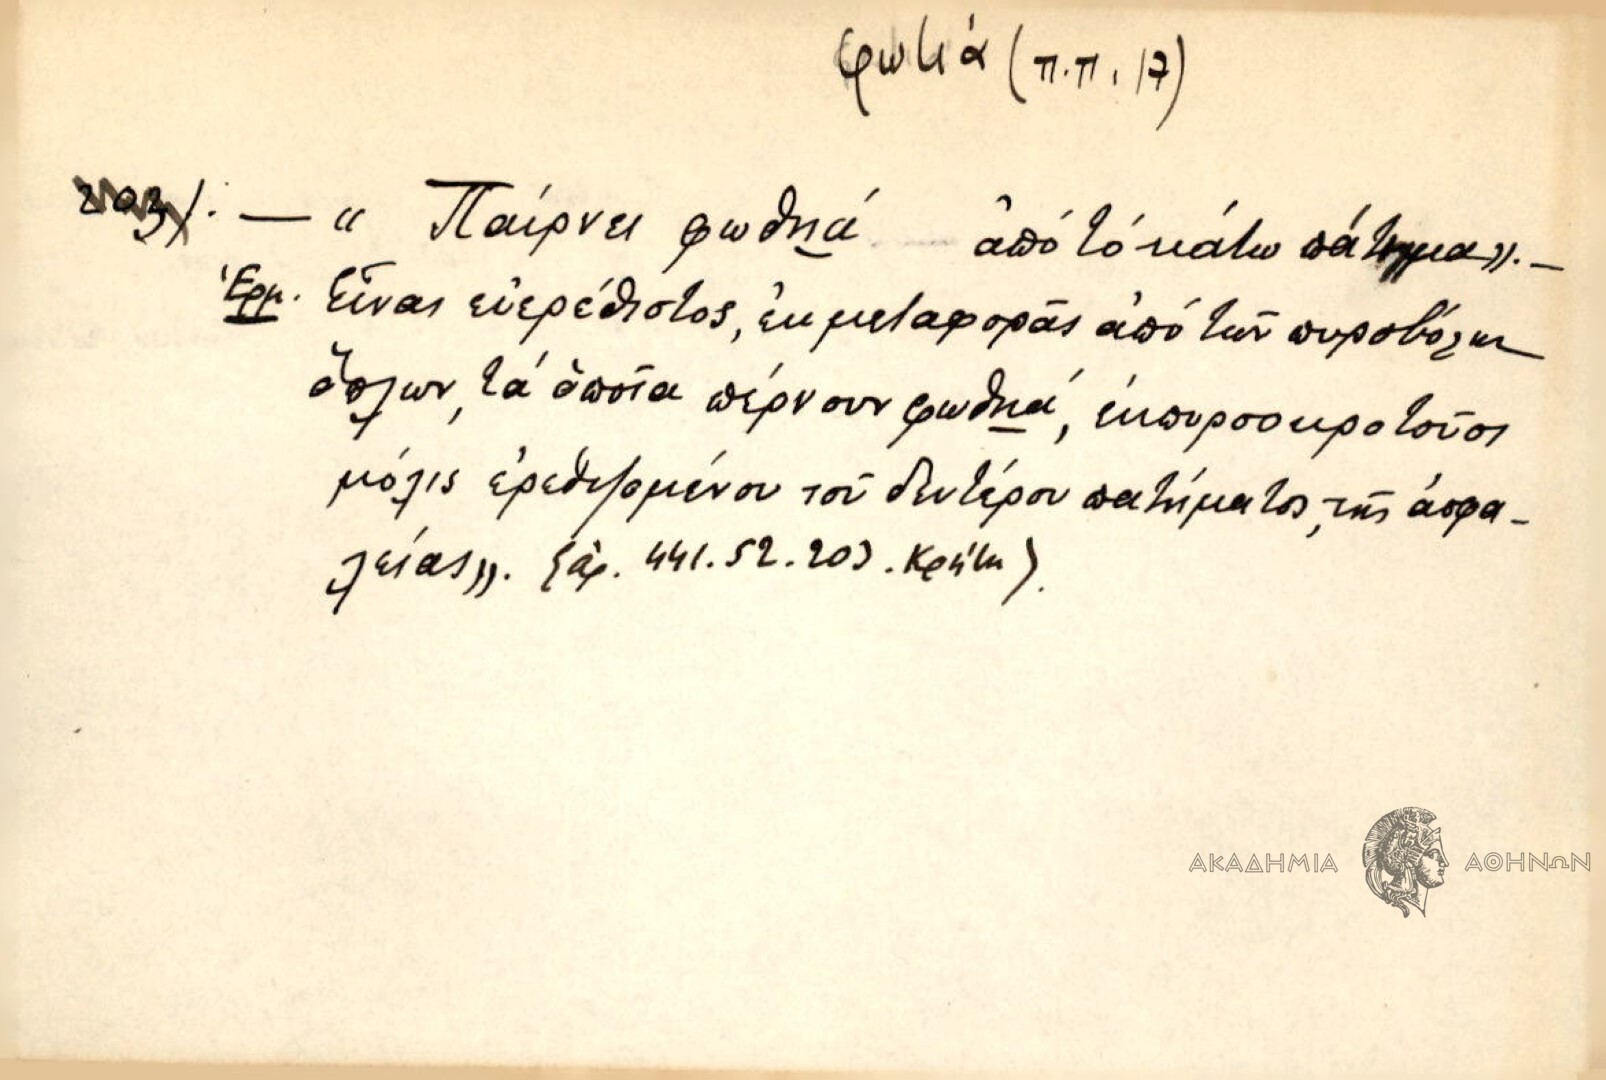 φωτιά (π.π. 17)
203/. — " Παίρνει φωθιά ἀπό τό κάτω πάτημα". —
Ἑρμ. Εἶναι εὐερέθιστος, ἐκ μεταφορᾶς ἀπό τῶν πυροβόλων
ὅπλων, τά ὁποῖα πέρνουν φωθιά, ἐκπυρσοκροτοῦσι
μόλις ἐρεθισμένου τοῦ δευτέρου πατήματος, τῆς ἀσφα-
λείας". (ἀρ. 441. 52. 203. Κρήτη).
ΑΚΑΔΗΜΙΑ ΑΘΗΝΩΝ